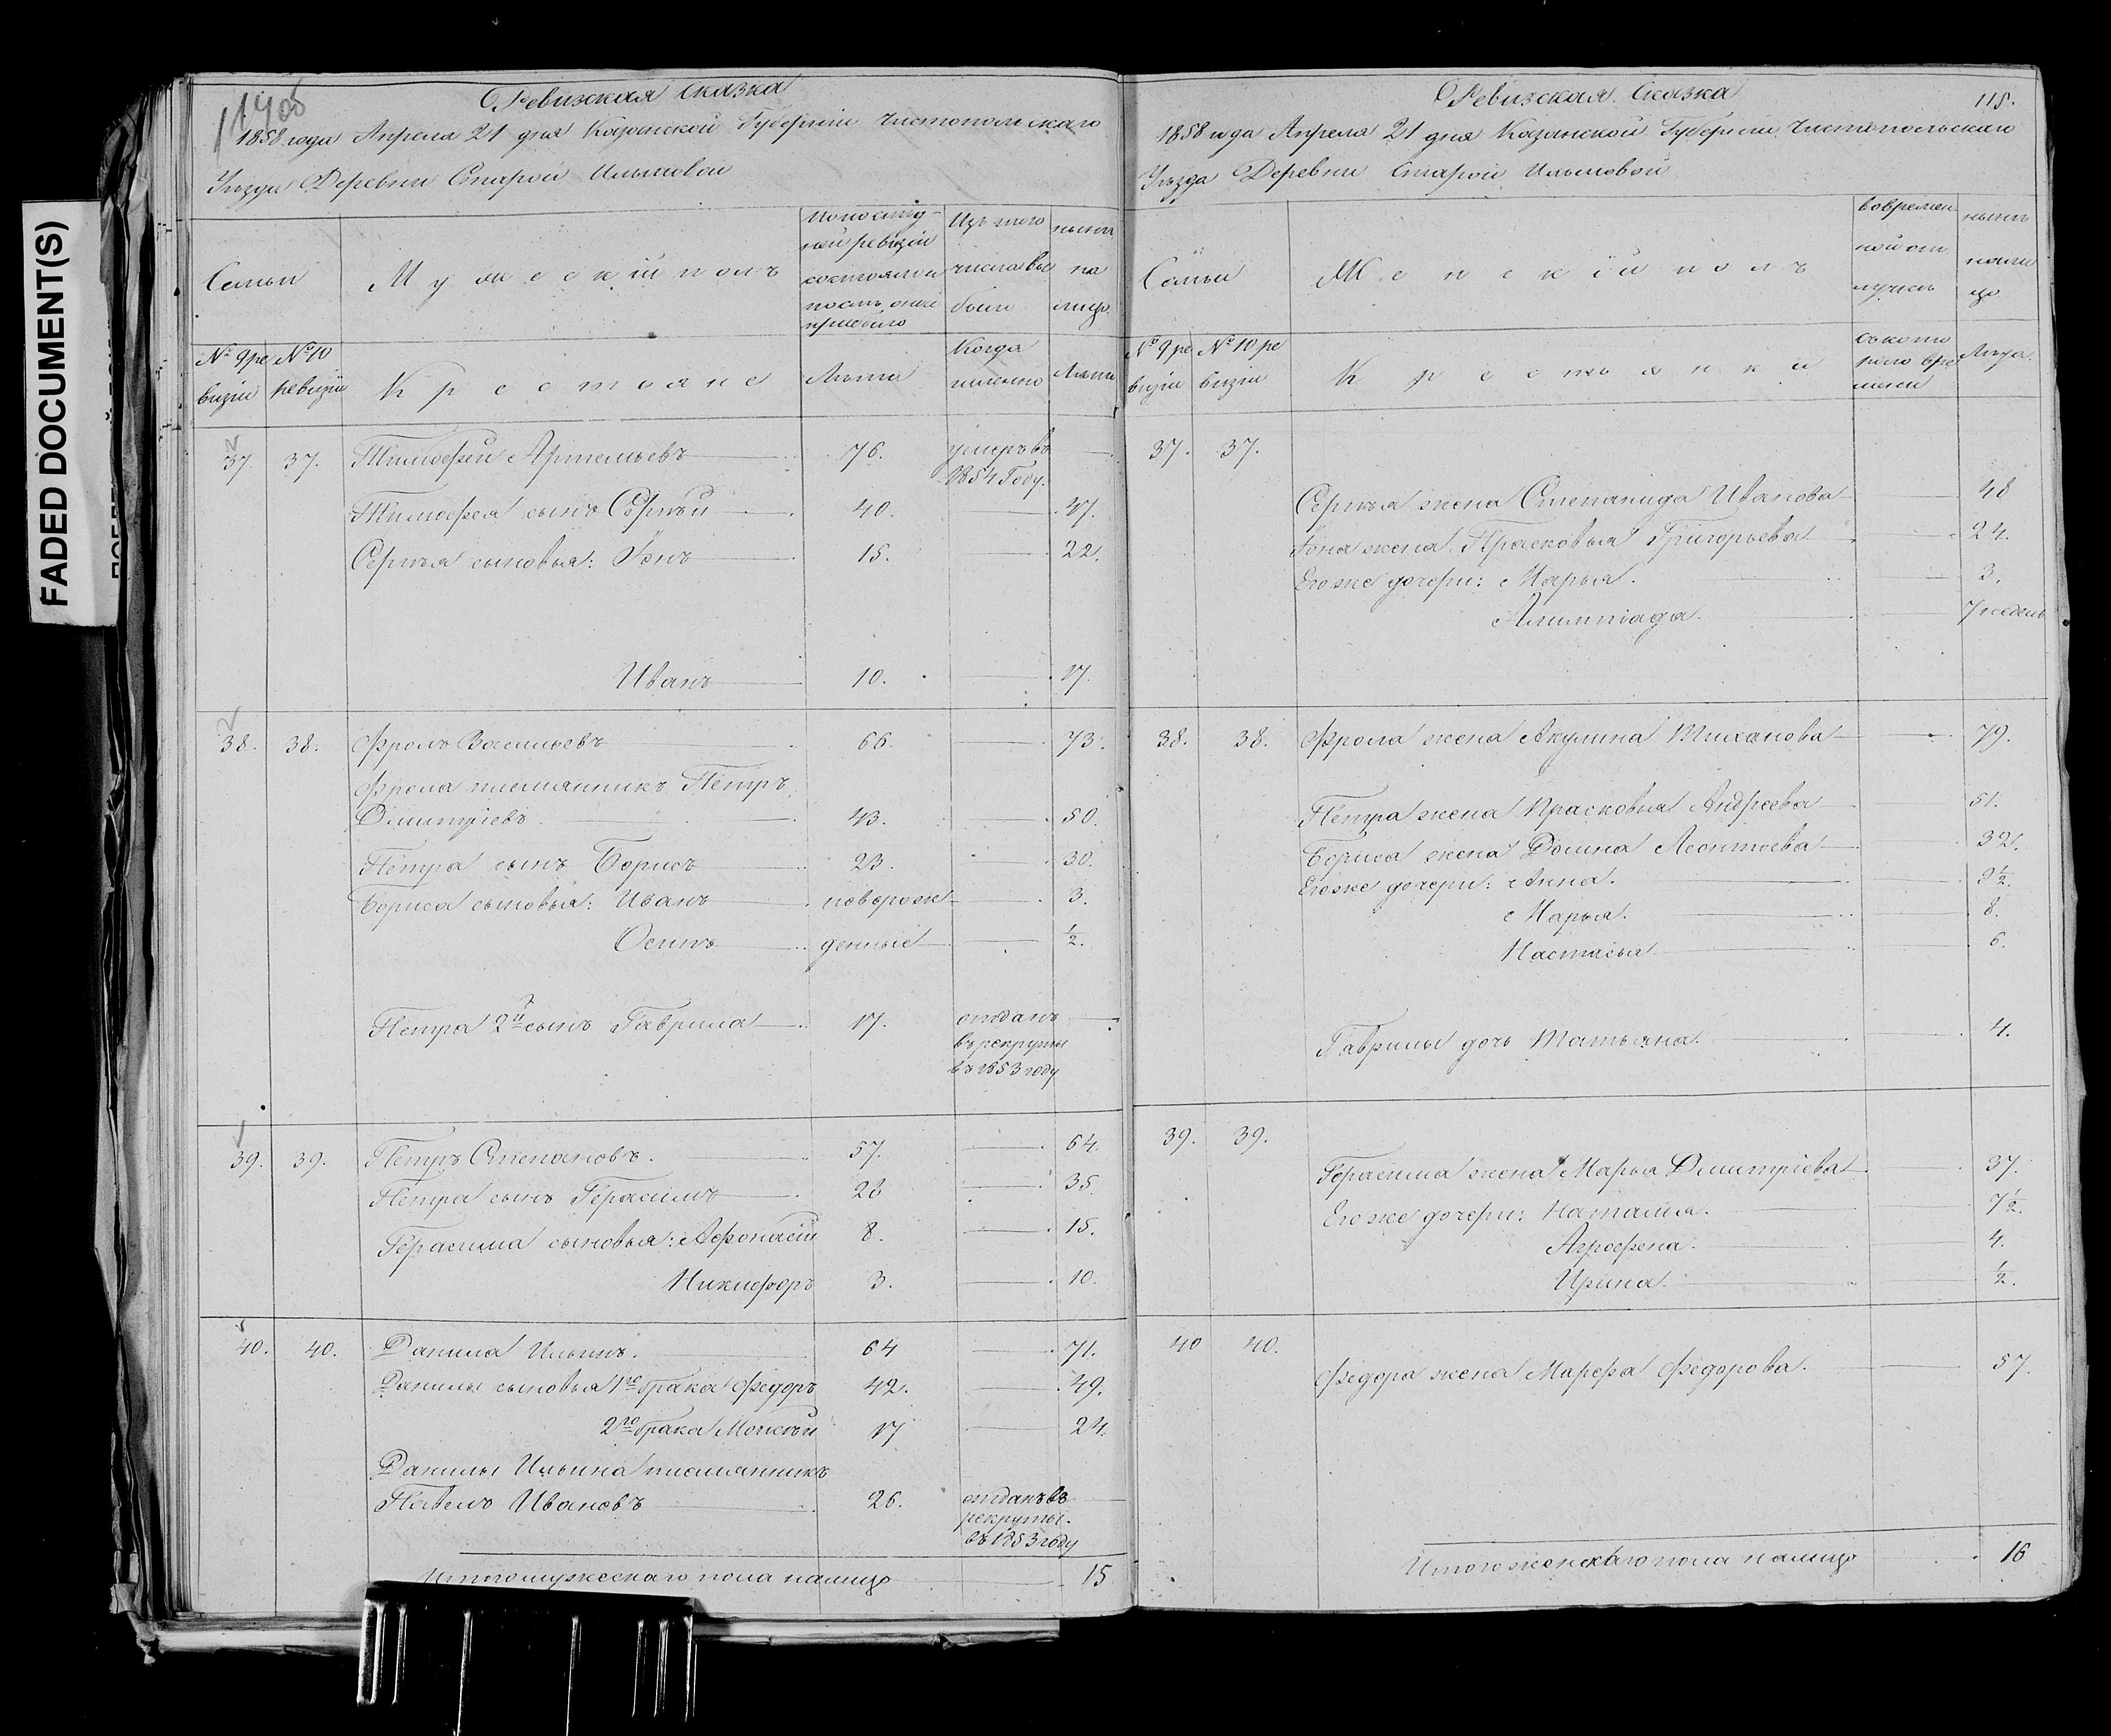 FADED DOCUMENT(S)
Ревизская Сказка
1858 года Апреля 21 дня Казанской Губернии Чистопольскаго
Уѣзда Деревни Старой Ильмовой
Семьи
Мужескій полъ
По послѣд-
ней ревизіи
состояло и
послѣ оной
прибыло
Изъ того
числа вы
было
нынѣ
на
лицо.
№ 9 ре
визіи
№ 10
ревизіи
Крестьяне
Лѣта
Когда
именно
Лѣта
37. 37. Тимофей Артемьевъ 76. умеръ въ
1854 Году.
Тимофея сынъ Сергѣй 40. 47.
Сергѣя сыновья: Іонъ 15. 22.
Иванъ 10. 17.
38. 38. Фролъ Васильевъ 66. 73.
Фрола племянникъ Петръ
Дмитріевъ 43. 50.
Петра сынъ Борисъ 23. 30.
Бориса сыновья: Иванъ новорож 3.
Осипъ денные 1/2.
Петра 2й сынъ Гаврила 17. отданъ
въ рекруты
въ 1853 году
39. 39. Петръ Степановъ. 57. 64.
Петра сынъ Герасимъ 28 35.
Герасима сыновья: Афонасій 8. 15.
Никифоръ 3. 10.
40. 40. Данила Ильинъ. 64 71.
Данилы сыновья 1го брака Федоръ 42. 49.
2го брака Моисѣй 17 24.
Данилы Ильина племянникъ
Павелъ Ивановъ 26. отданъ въ
рекруты.
въ 1853 году
Итого мужескаго пола налицо 15
Ревизская Сказка
115.
1858 года Апреля 21 дня Казанской Губерніи Чистопольскаго
Уѣзда Деревни Старой Ильмовой
Семьи
Женскій полъ
во времен
ной от
лучкѣ
нынѣ
нали
цо
№ 9 ре
визіи
№ 10 ре
визіи
Крестьянки
съ кото
раго вре
мени
Лѣта.
37. 37.
Сергѣя жена Степанида Иванова 48
Іона жена Прасковья Григорьева 24.
Его же дочери: Марья. 3.
Алимпіада. 7 недель
38. 38. Фрола жена Акулина Тиханова 79.
Петра жена Прасковья Андреева 51.
Бориса жена Домна Леонтьева 32.
Его же дочери: Анна. 9 1/2.
Марья. 8.
Настасья 6.
Гаврилы дочь Татьяна. 4.
39. 39.
Герасима жена Марья Дмитріева 37.
Его же дочери: Наталья. 7 1/2.
Агрофена. 4.
Ирина. 1/2.
40 40.
Федора жена Марфа Федорова. 57.
Итого женскаго пола налицо 16